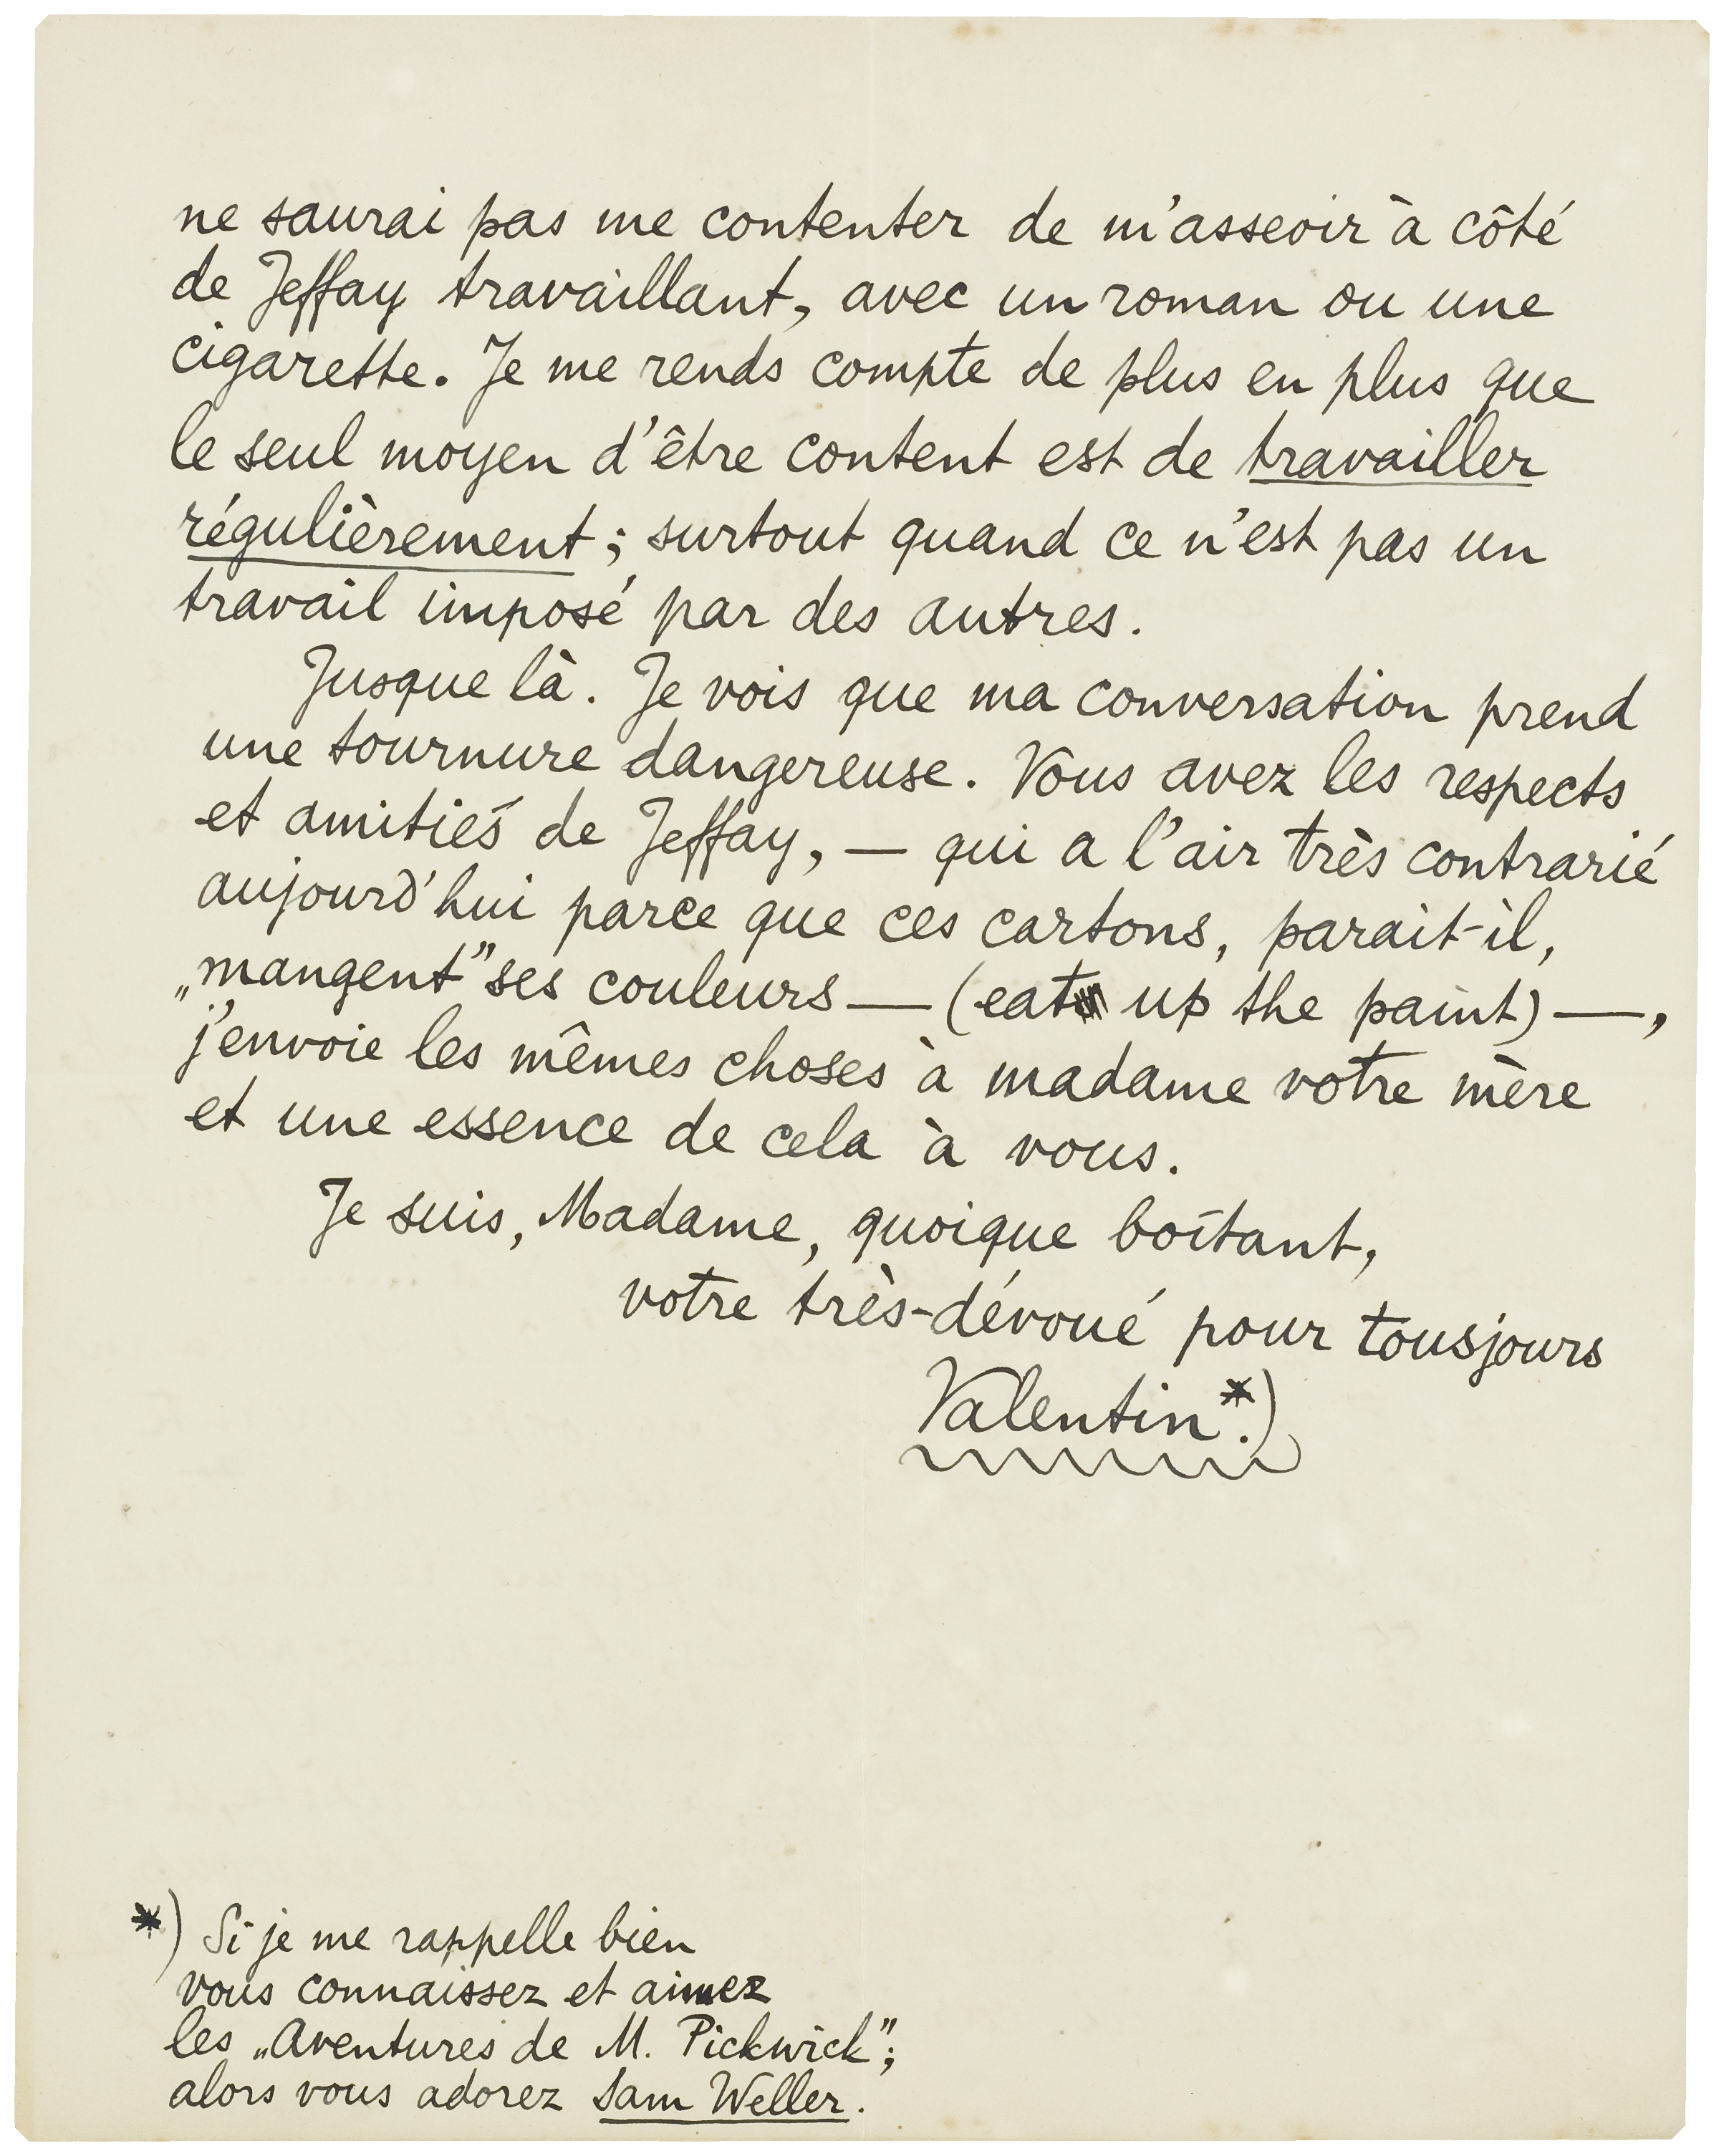 ne saurai pas me contenter de m'asseoir à côté
de Jeffay travaillant, avec un roman ou une
cigarette. Je me rends compte de plus en plus que
le seul moyen d'être content est de travailler
régulièrement; surtout quand ce n'est pas un
travail imposé par des autres.
Jusque là. Je vois que ma conversation prend
une tournure dangereuse. Vous avez les respects
et amitiés de Jeffay, — qui a l'air très contrarié
aujourd'hui parce que ces cartons, parait-il,
„mangent" ses couleurs — (eat up the paint) —,
j'envoie les mêmes choses à madame votre mère
et une essence de cela à vous.
Je suis, Madame, quoique boîtant,
votre très-dévoué pour tousjours
Valentin*.)
*) Si je me rappelle bien
vous connaissez et aimez
les „Aventures de M. Pickwick";
alors vous adorez Sam Weller.